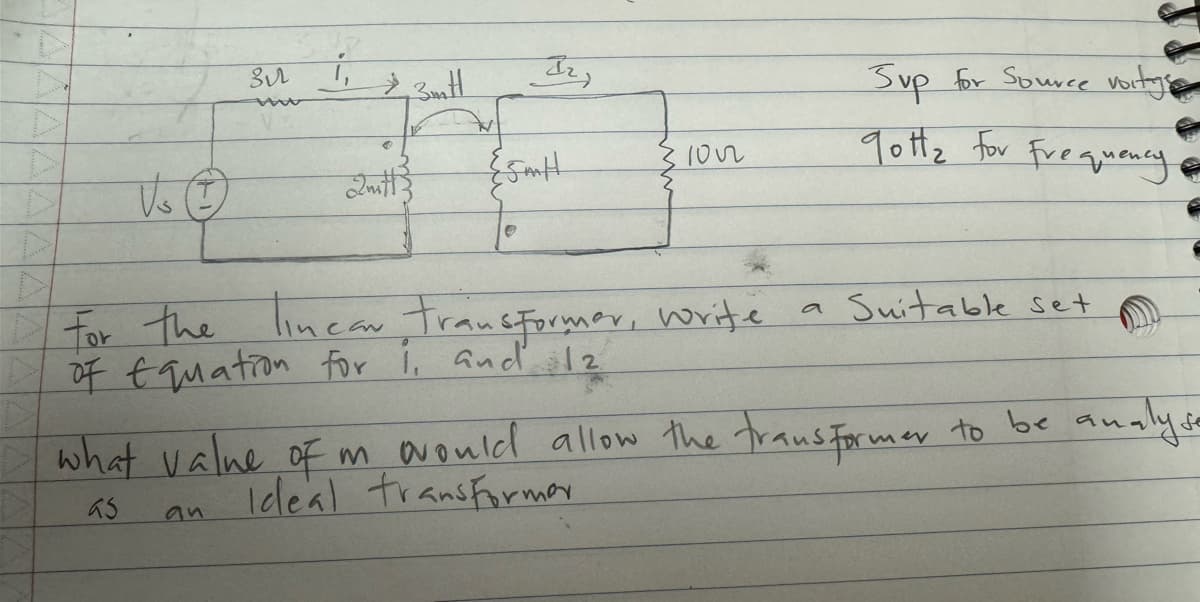 3Ω i₁ 3mH I₂
5vp for Source
90Hz for Frequency
Vs 2mH 5mH 10Ω
For the linear transformer, write a Suitable set
of Equation for i₁ and i2
what value of m would allow the transformer to be analyse
as an Ideal transformer